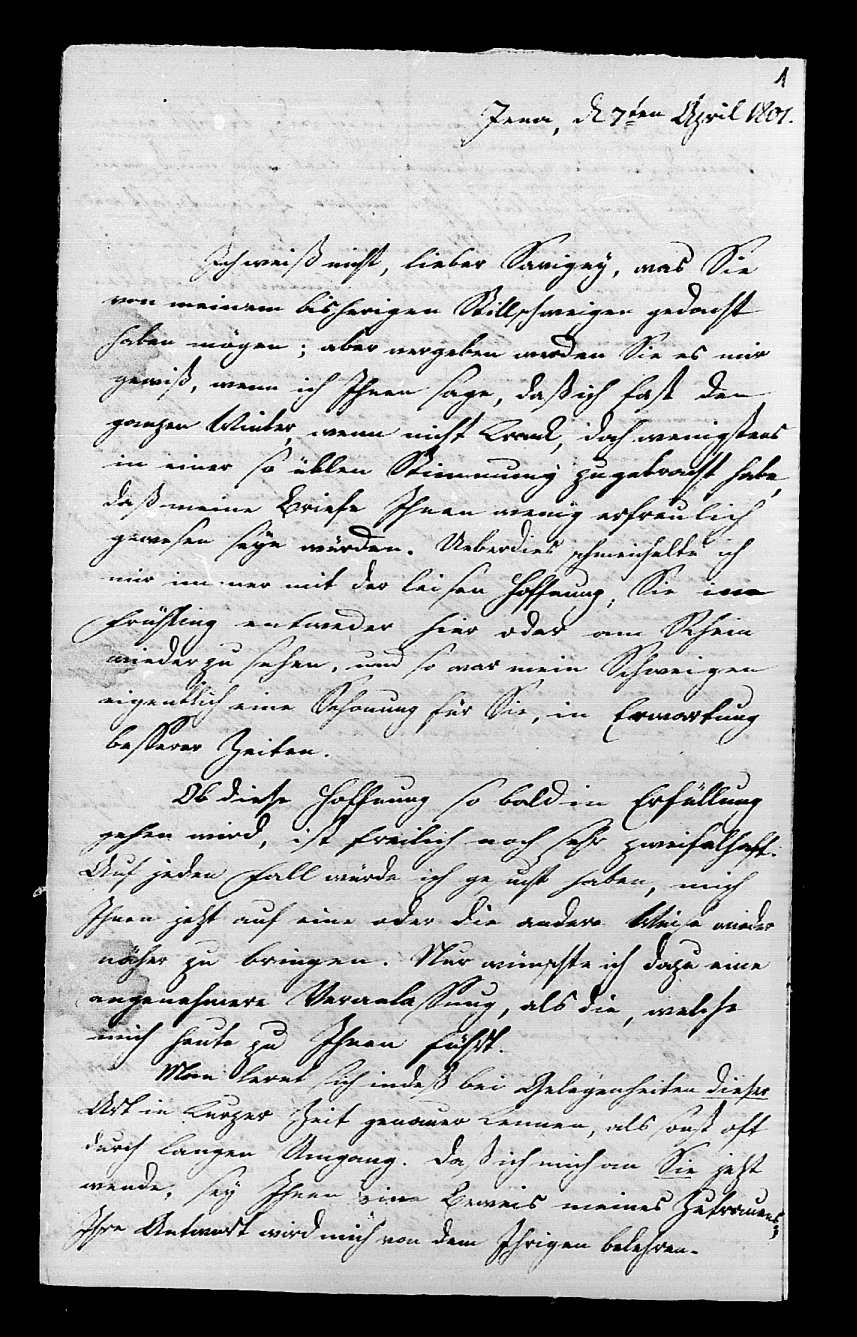 1
Jena, d. 7ten April 1801.
Ich weiß nicht, lieber Savigny, was Sie
von meinem bisherigen Stillschweigen gedacht
haben mögen; aber vergeben werden Sie es mir
gewiß, wenn ich Ihnen sage, daß ich fast den
ganzen Winter, wenn nicht krank, doch wenigstens
in einer so üblen Stimmung zugebracht habe,
daß meine Briefe Ihnen wenig erfreulich
gewesen seyn würden. Ueberdies schmeichelte ich
mir immer mit der leisen Hoffnung, Sie im
Frühling entweder hier oder am Rhein
wieder zu sehen, und so war mein Schweigen
eigentlich eine Schonung für Sie, in Erwartung
besserer Zeiten.
Ob diese Hoffnung so bald in Erfüllung
gehen wird, ist freilich noch sehr zweifelhaft.
Auf jeden Fall würde ich gesucht haben, mich
Ihnen jezt auf eine oder die andere Weise wieder
näher zu bringen. Nur wünschte ich dazu eine
angenehmere Veranlassung, als die, welche
mich heute zu Ihnen führt.
Man lernt sich indeß bei Gelegenheiten dieser
Art in kurzer Zeit genauer kennen, als sonst oft
durch langen Umgang. Daß ich mich an Sie jezt
wende, sey Ihnen ein Beweis meines Zutrauens;
Ihre Antwort wird mich von dem Ihrigen belehren.